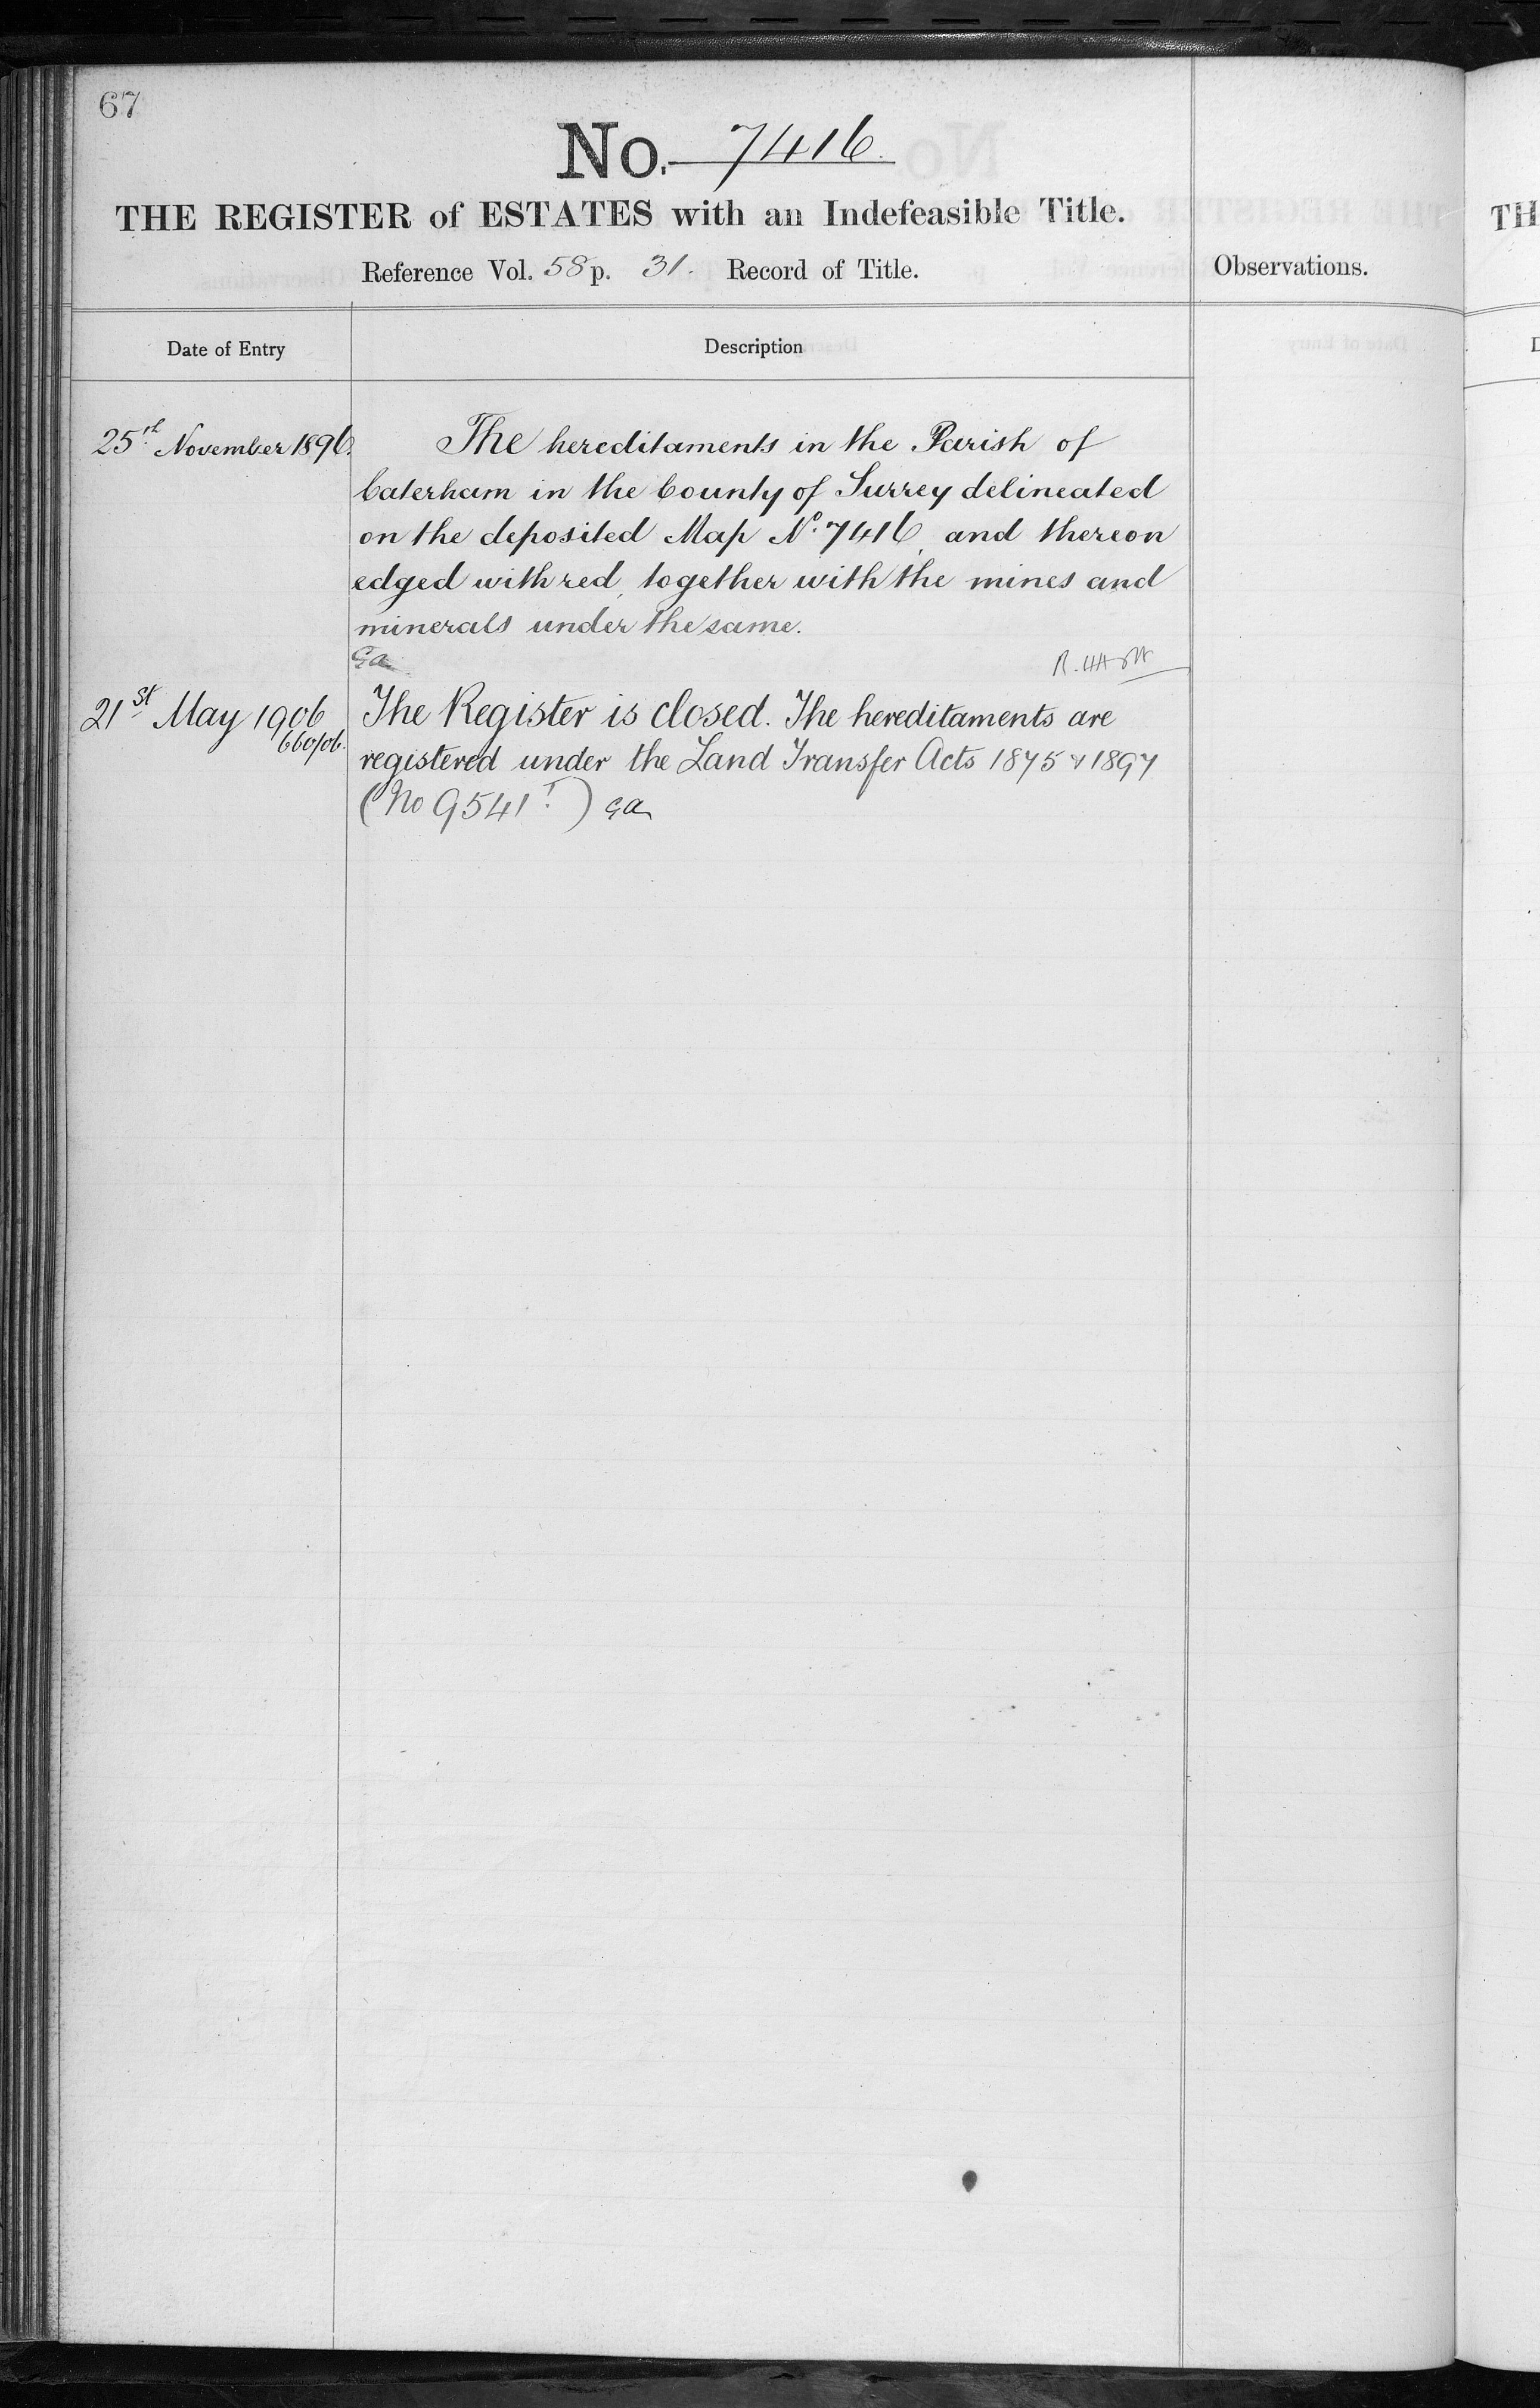 67
No. 7416.
THE REGISTER of ESTATES with an Indefeasible Title.
Reference Vol. 58 p. 31. Record of Title.
Observations.
Date of Entry
Description
25th November 1896.
The hereditaments in the Parish of
Caterham in the County of Surrey delineated
on the deposited Map No. 7416, and thereon
edged with red, together with the mines and
minerals under the same.
21st May 1906
660/06.
The Register is closed. The hereditaments are
registered under the Land Transfer Acts 1875 & 1897
(No 9541)
TH